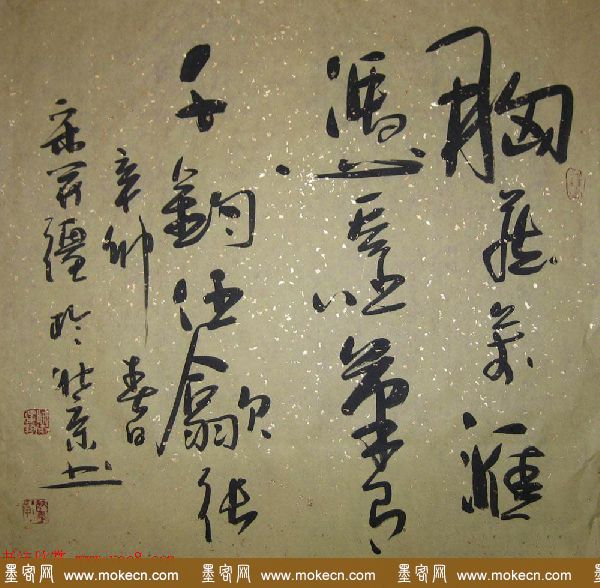 胸藏萬滙
憑吞吐筆有
千鈞任歙張
辛卯春日
於北京书
www.yac8.com
墨客网 www.mokecn.com 墨客网 www.mokecn.com 墨客网 www.mokecn.com